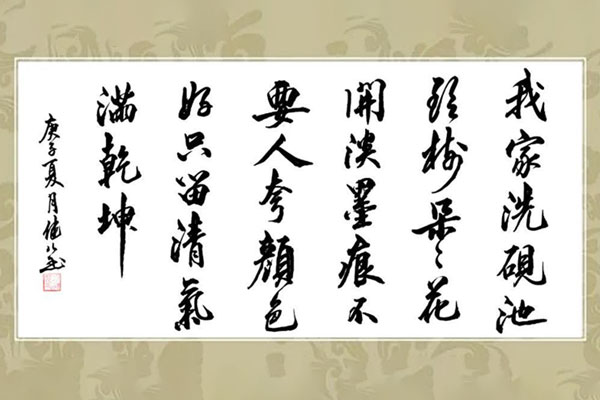 我家洗硯池
頭樹朵々花
開淡墨痕不
要人夸顏色
好只留清氣
滿乾坤
庚子夏月